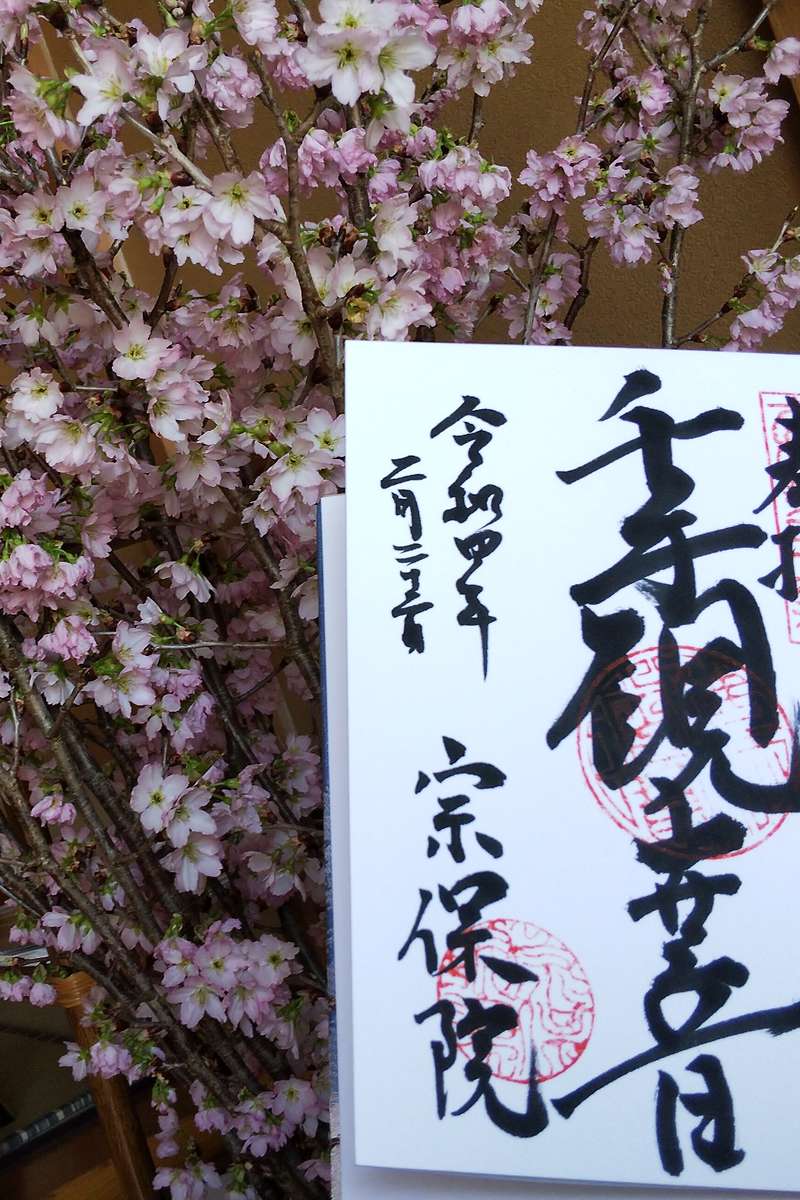 奉拝
千手観世音
令和四年
二月二十三日
宗保院